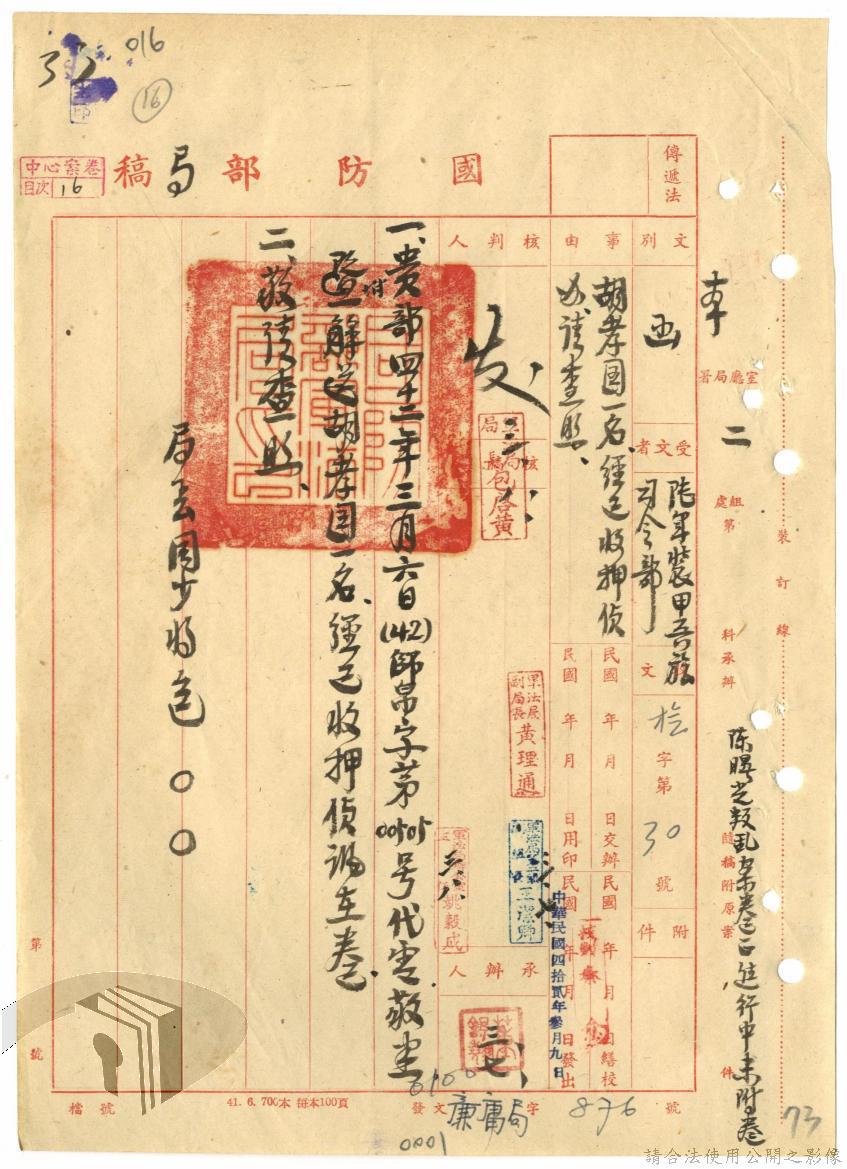 016
16
中心案卷
目次 16
國防部局稿
傳遞法
文別
函
事由
胡孝國一名經已收押偵
為請查照
受文者
陸軍裝甲兵旅
司令部
文
字第
30
號
附件
本
室廳局署
二
組處第
科承辦
陳曙光叛亂案卷正進行中未附卷
隨稿附原案
件
裝訂線
核判人
發
核
民國 年 月 日交辦
民國 年 月 日用印
民國 年 月 日繕校
民國 年 月 日發出
中華民國四拾貳年參月九日
軍法局副局長黃理通
姚毅成
承辦人
三、七、
三、八
一、貴部四十二年三月六日(42)師帛字第0505號代電敬悉
暨附解送胡孝國一名、經已收押偵訊在卷、
二、敬請查照、
局長周少將 ○○
第
號
檔號
41. 6. 700本 每本100頁
發文
字
876
號
0100
0001
73
請合法使用公開之影像